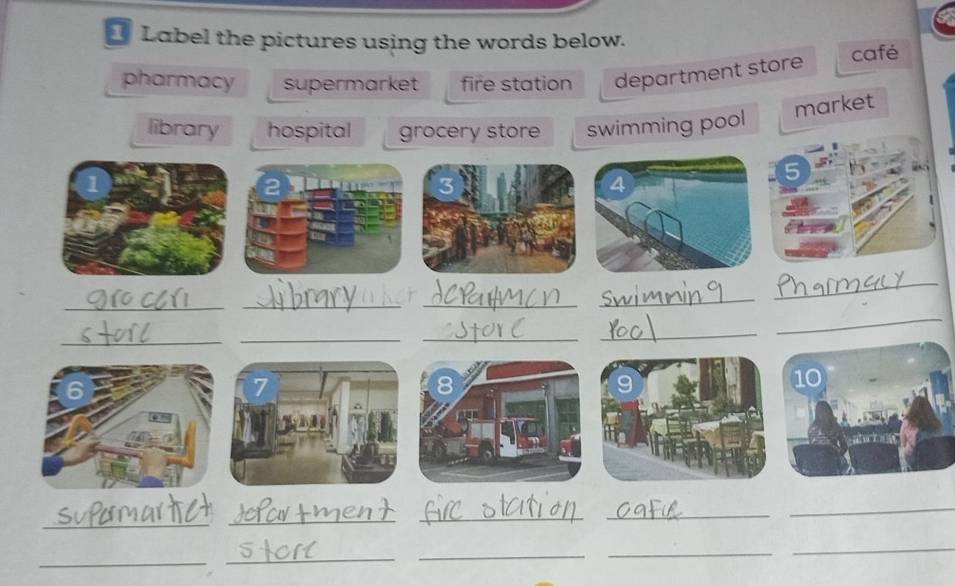 1 Label the pictures using the words below.
pharmacy supermarket fire station department store café
library hospital grocery store swimming pool market
1 2 3 4 5
groceri library departmen swimming Pharmacy
store store Pool
6 7 8 9 10
supermarket department fire station cafe
store